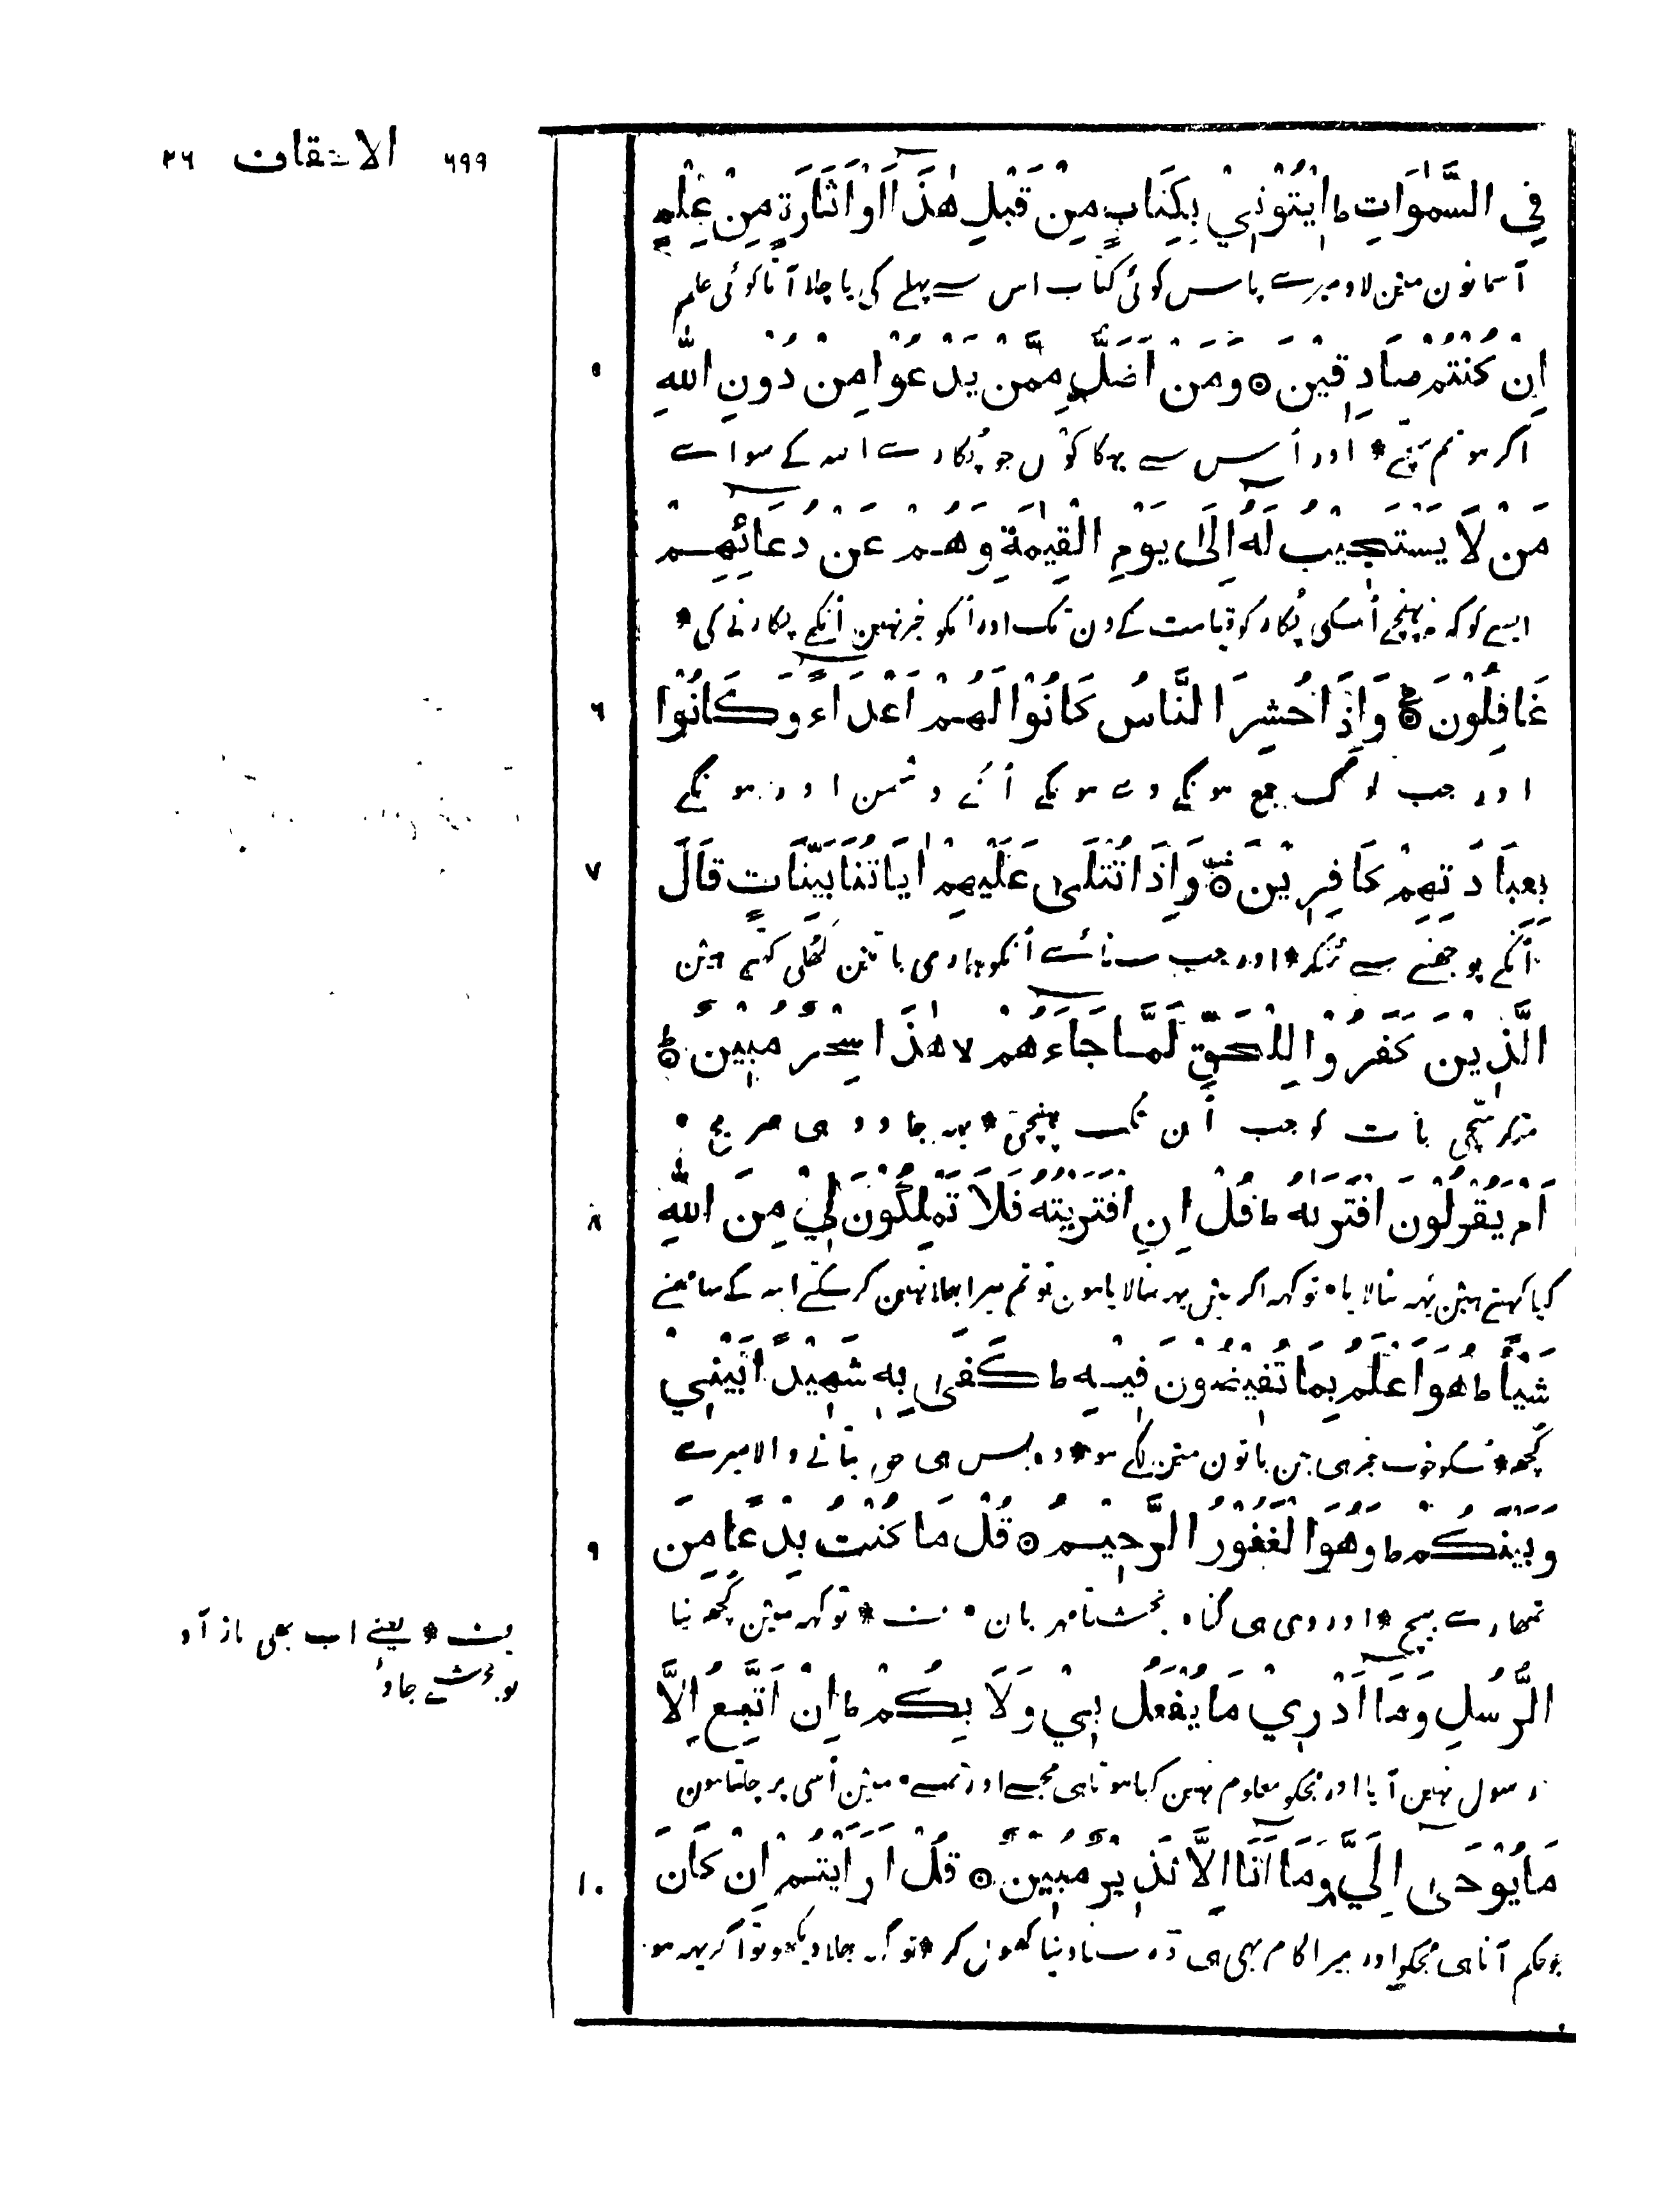 ٦٩٩ الاحقاف ٢٦
فِي السَّمٰوَاتِ ط اِيْتُوْنِيْ بِكِتَابٍ مِنْ قَبْلِ هٰذَآ اَوْ اَثَارَةٍ مِنْ عِلْمٍ
آسمانون مین لاو میرے پاس کوئی کتاب اس سے پہلے کی یا چلا آتا کوئی علم
٥ اِنْ كُنْتُمْ صَادِقِيْنَ ۞ وَمَنْ اَضَلُّ مِمَّنْ يَدْعُوْا مِنْ دُوْنِ اللّٰهِ
اگر ہو تم سچّے * اور اُس سے بہکا کون جو پُکارے اللہ کے سواے
مَنْ لَا يَسْتَجِيْبُ لَهُ اِلٰى يَوْمِ الْقِيٰمَةِ وَهُمْ عَنْ دُعَآئِهِمْ
ایسے کو کہ نہ پہنچے اُسکی پُکار کو قیامت کے دن تک اور اُنکو خبر نہین اُنکے پکارنے کی *
٦ غَافِلُوْنَ ۞ وَاِذَا حُشِرَ النَّاسُ كَانُوْا لَهُمْ اَعْدَآءً وَكَانُوْا
اور جب لوگ جمع ہونگے وے ہونگے اُنکے دشمن اور ہونگے
٧ بِعِبَادَتِهِمْ كَافِرِيْنَ ۞ وَاِذَا تُتْلٰى عَلَيْهِمْ اٰيَاتُنَا بَيِّنَاتٍ قَالَ
اُنکے پوجنے سے مُنکر * اور جب سنائے اُنکو ہماری باتین کُھلی کہتے ہین
الَّذِيْنَ كَفَرُوْا لِلْحَقِّ لَمَّا جَآءَهُمْ لا هٰذَا سِحْرٌ مُبِيْنٌ ط
منکر سچّی بات کو جب اُن تک پہنچی * یہہ جادو ہی صریح *
٨ اَمْ يَقُوْلُوْنَ افْتَرٰىهُ ط قُلْ اِنِ افْتَرَيْتُهُ فَلَا تَمْلِكُوْنَ لِيْ مِنَ اللّٰهِ
کیا کہتے ہین یہہ بنا لایا * تو کہہ اگر مین یہہ بنا لایا ہون تو تم میرا بھلا نہین کر سکتے اللہ کے سامھنے
شَيْئًا ط هُوَ اَعْلَمُ بِمَا تُفِيْضُوْنَ فِيْهِ ط كَفٰى بِهٖ شَهِيْدًا بَيْنِيْ
کُچھ * اُسکو خوب خبر ہی جن باتون مین لگے ہو * وہ بس ہی حق بتانے والا میرے
٩ وَبَيْنَكُمْ ط وَهُوَ الْغَفُوْرُ الرَّحِيْمُ ۞ قُلْ مَا كُنْتُ بِدْعًا مِنَ
تمھارے بیچ * اور وہی ہی گناہ بخشتا مہربان * ف * تو کہہ مین کُچھ نیا
ف * یعنے اب بھی باز آو
تو بخشے جاوٴ
الرُّسُلِ وَمَآ اَدْرِيْ مَا يُفْعَلُ بِيْ وَلَا بِكُمْ ط اِنْ اَتَّبِعُ اِلَّا
رسول نہین آیا اور مجکو معلوم نہین کیا ہوتا ہی مجسے اور تمسے * مین اُسی پر چلتا ہون
١٠ مَا يُوْحٰى اِلَيَّ وَمَآ اَنَا اِلَّا نَذِيْرٌ مُبِيْنٌ ۞ قُلْ اَرَاَيْتُمْ اِنْ كَانَ
جو حکم آتا ہی مجکو اور میرا کام یہی ہی ڈر سنا دینا کھول کر * تو کہہ بھلا دیکھو تو اگر یہہ ہو